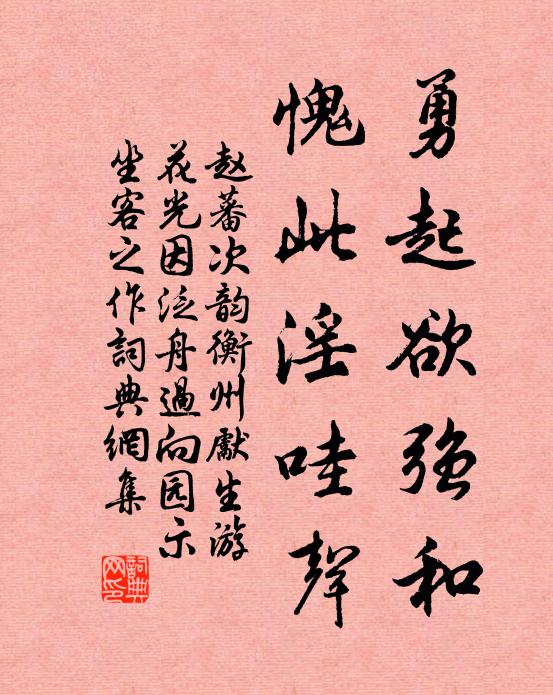 勇起欲强和
愧此淫哇聲
赵蕃次韵衡州獻生游
花光因泛舟過向园示
坐客之作詞典網集
詞典网印